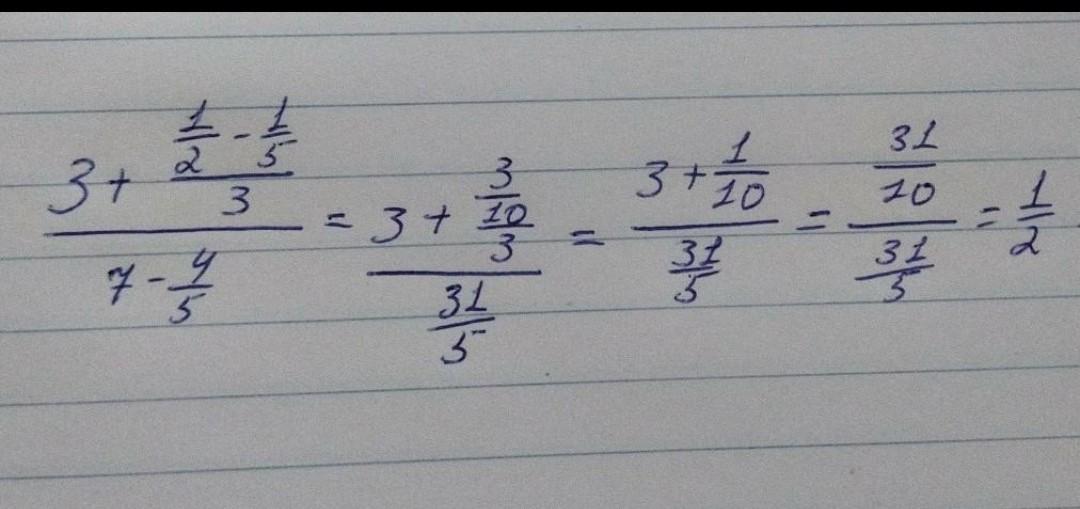 (3 + (1/2 - 1/5)/3)/(7 - 4/5) = (3 + (3/10)/3)/(31/5) = (3 + 1/10)/(31/5) = (31/10)/(31/5) = 1/2